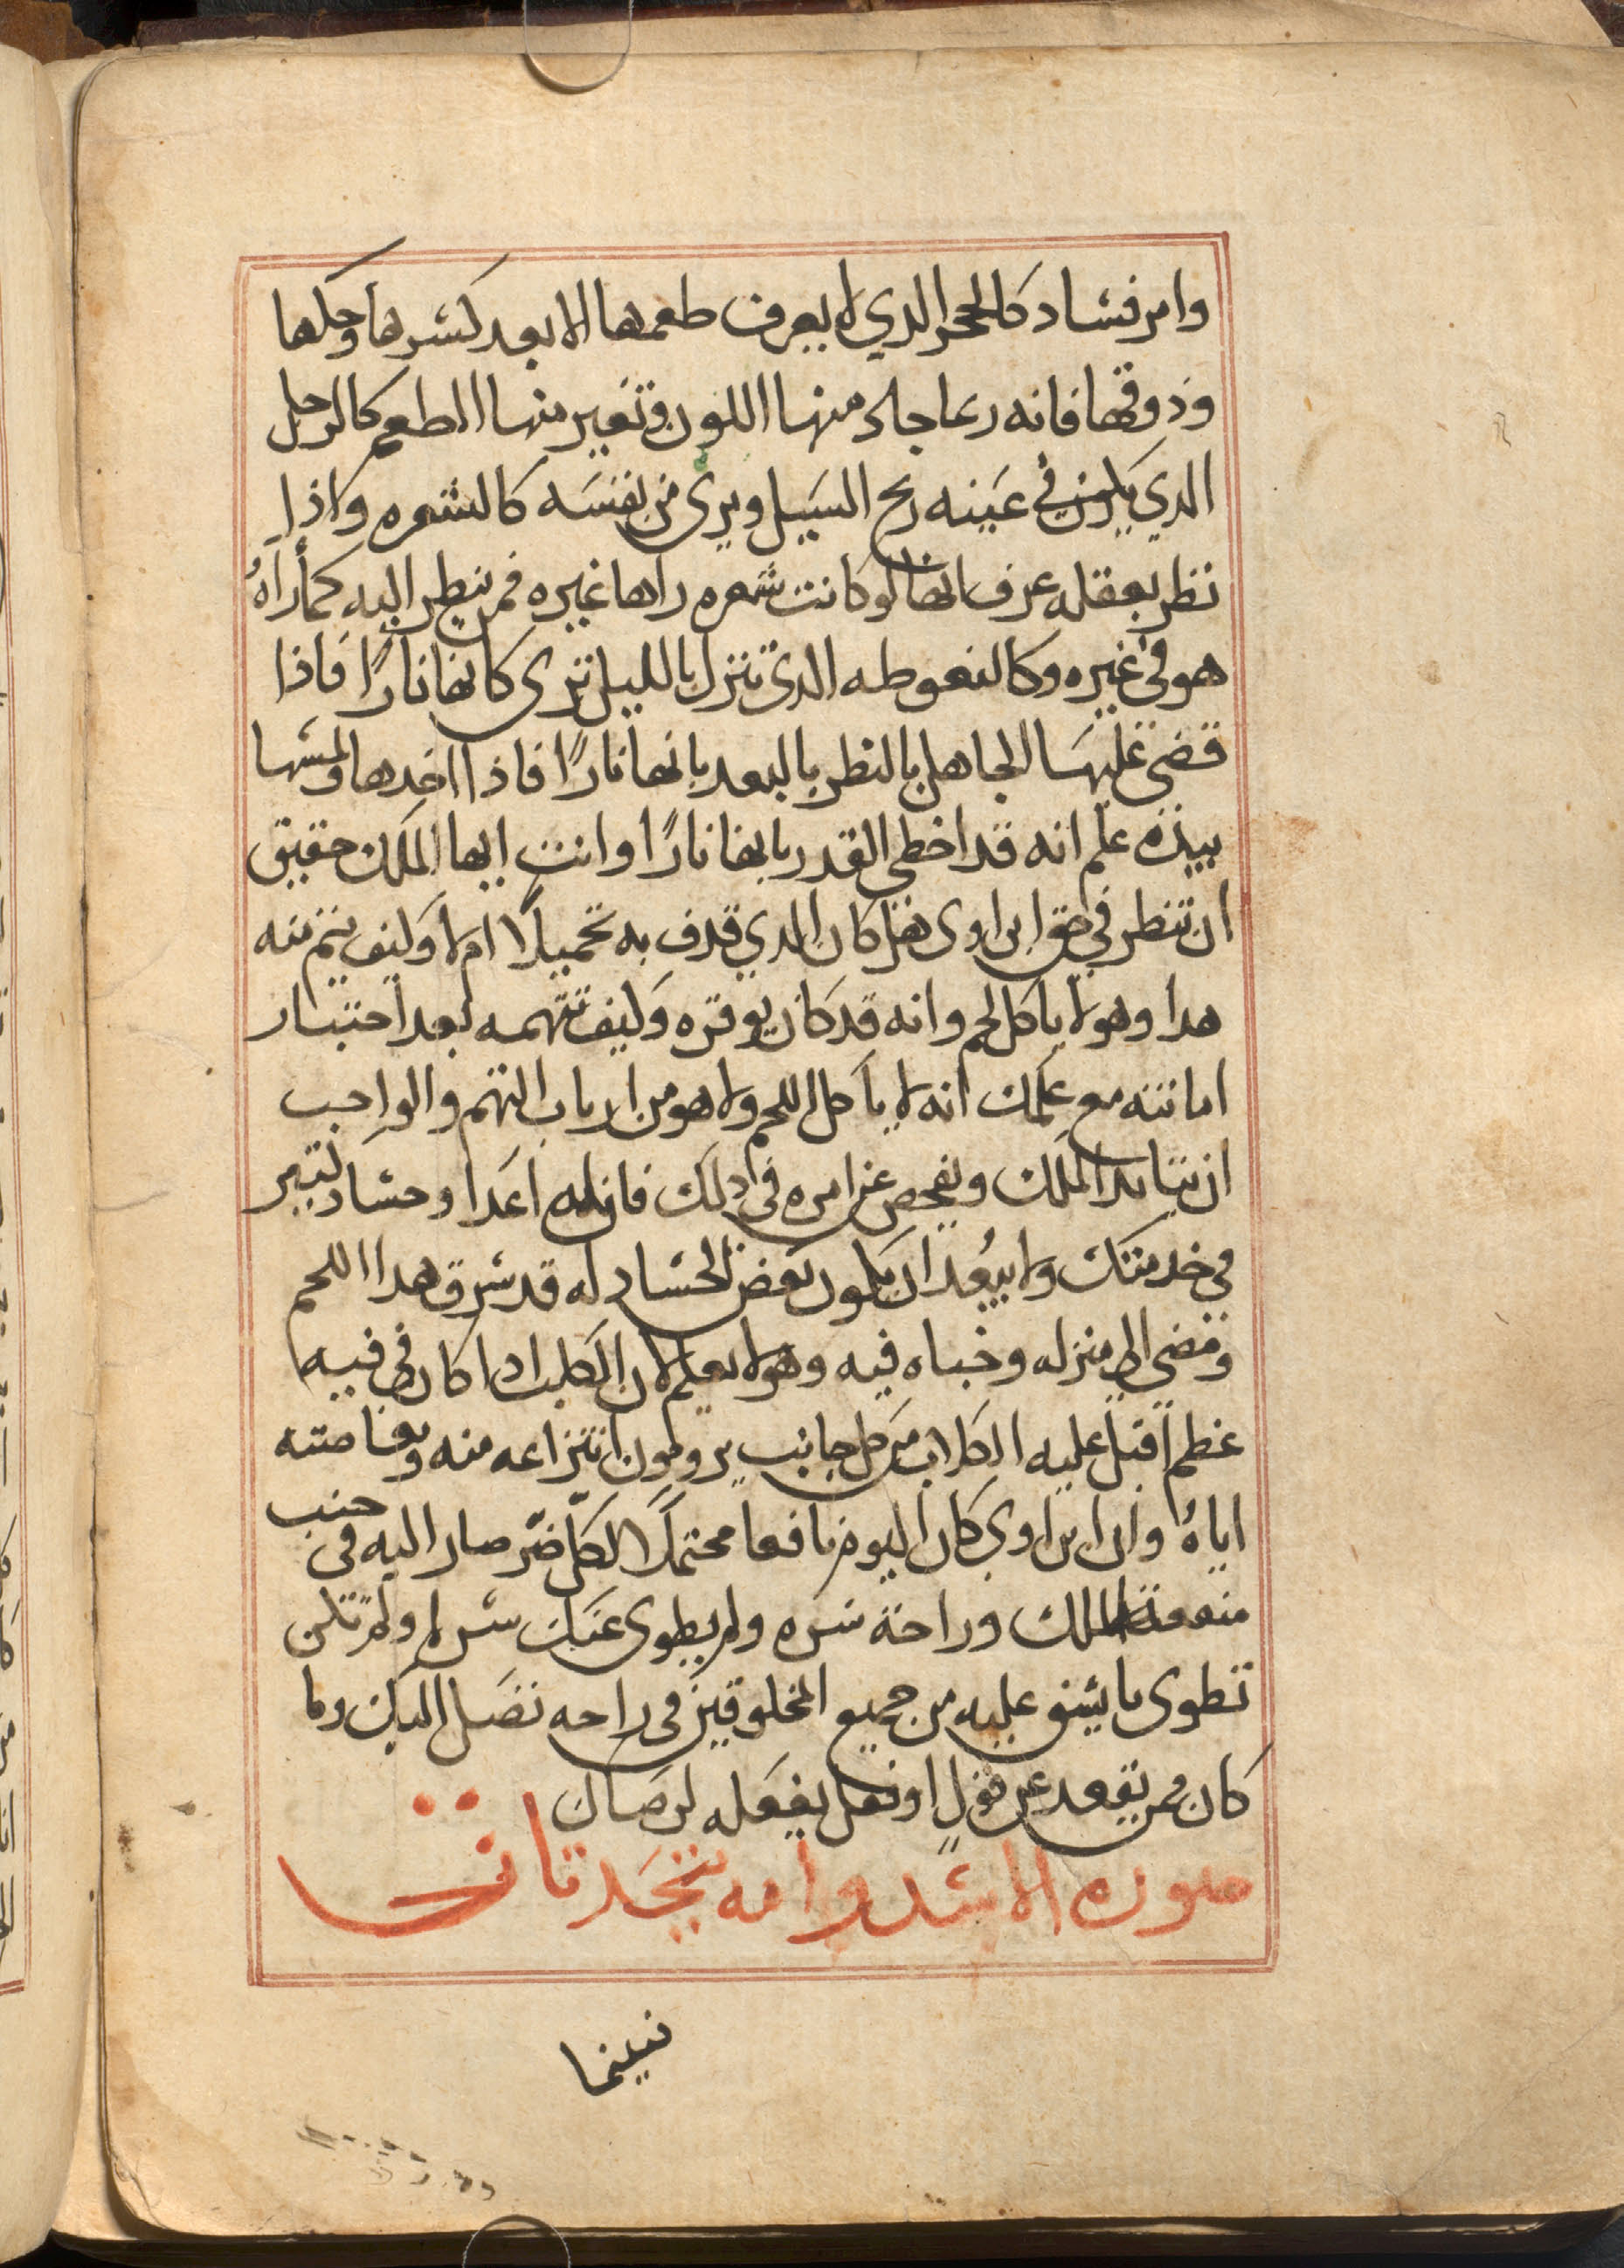 وامر فساد كالحجر الدي لا يعرف طعمها الا بعد كسرها وحكها
وذوقها فانه ربما جاد منها اللون وتغير منها الطعم كالرجل
الدي يكون في عينه ريح السيل ويرى من نفسه كالشعره واذا
نظر بعقله عرف انها لو كانت شعره راها غيره فمن ينظر اليه كما رآهُ
هو في غيره وكالنعوطه الدى تنزل بالليل ترى كانها نارًا فاذا
قضى عليها الجاهل بالنظر بالبعد بانها نارًا فاذا اخدها ولمسها
بيده علم انه قد اخطى القدر بانها نارًا وانت ايها الملك حقيق
ان تنظر في حق ابن اوى هل كان الدي قدف به تحميلًا ام لا وكيف يتم منه
هدا وهو لا ياكل لحم وانه قد كان يوقره وكيف تتهمه بعد اختبار
امانته مع علمك انه لا يأكل اللحم ولا هو من ارباب التهم والواجب
ان يتايد الملك ويفحص عن امره في دلك فان له اعدا وحساد لتبر
في خدمتك ولا يبعُد ان يكون بعض الحساد له قد سرق هدا اللحم
ومضى الى منزله وخباه فيه وهو لا يعلم لان الكلب ادا كان في فيه
عظم اقبل عليه الكلاب من كل جانب يرومون انتزاعه منه ومغاصته
اياهُ وان ابن اوي كان اليوم نافعا محتملًا لكل ضّر صار اليه في جنب
منفعة الملك وراحة سره ولم يطوى عنك سر له ولم تكن
تطوى ما يشق عليه من جميع المخلوقين في راحه تصل اليك وما
كان ممن يقعد عن قول او فعل يفعله لرضاك
صوره الاسد وامه يتحدتان
نبينما